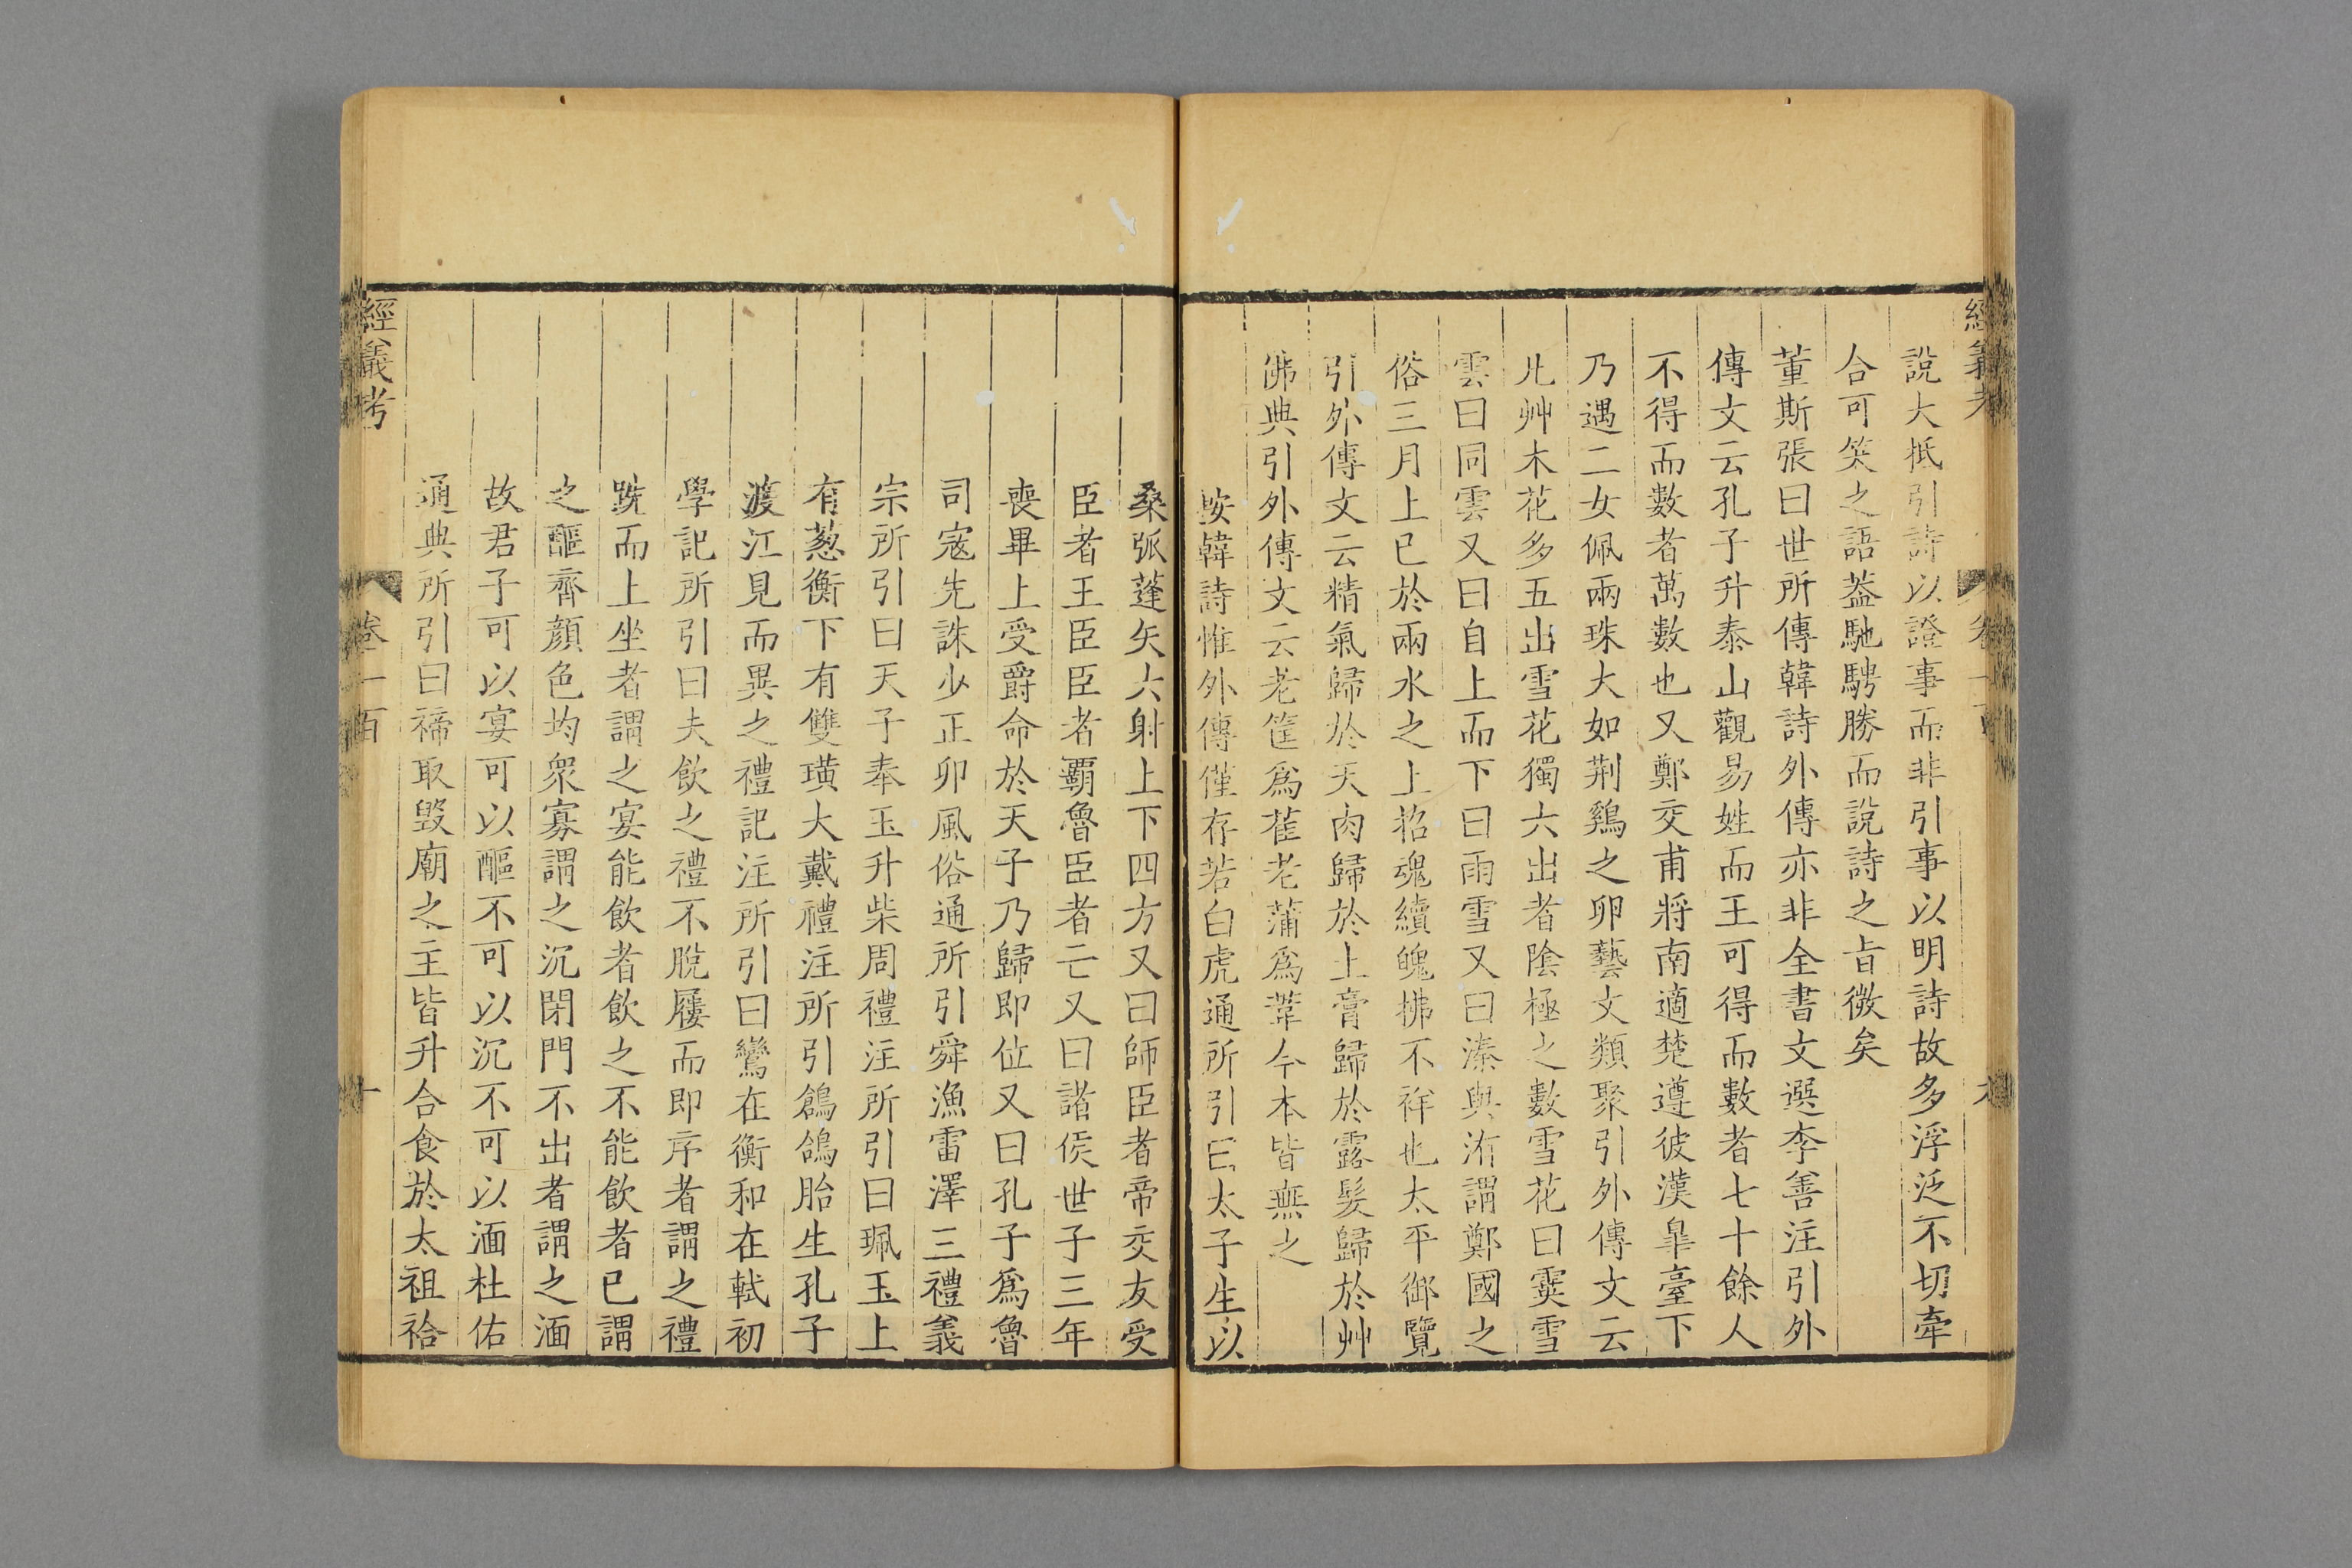 經義考
卷一百
九
說大抵引詩以證事而非引事以明詩故多浮泛不切牽
合可笑之語葢馳騁勝而說詩之㫖微矣
董斯張曰世所傳韓詩外傳亦非全書文選李善注引外
傳文云孔子升泰山觀易姓而王可得而數者七十餘人
不得而數者萬數也又鄭交甫將南適楚遵彼漢臯臺下
乃遇二女佩兩珠大如荆鷄之卵藝文類聚引外傳文云
凡艸木花多五出雪花獨六出者陰極之數雪花曰霙雪
雲曰同雲又曰自上而下曰雨雪又曰溱與洧謂鄭國之
俗三月上巳於兩水之上招魂續魄拂不祥也太平御覽
引外傳文云精氣歸於天肉歸於土膏歸於露髮歸於艸
佛典引外傳文云老筐爲萑老蒲爲葦今本皆無之
按韓詩惟外傳僅存若白虎通所引曰太子生以
桑弧蓬矢六射上下四方又曰師臣者帝交友受
臣者王臣臣者霸魯臣者亡又曰諸侯世子三年
喪畢上受爵命於天子乃歸即位又曰孔子爲魯
司寇先誅少正卯風俗通所引舜漁雷澤三禮義
宗所引曰天子奉玉升柴周禮注所引曰珮玉上
有蔥衡下有雙璜大戴禮注所引鶬鴿胎生孔子
渡江見而異之禮記注所引曰鸞在衡和在軾初
學記所引曰夫飲之禮不脫屨而即序者謂之禮
跣而上坐者謂之宴能飲者飲之不能飲者已謂
之醧齊顔色均衆寡謂之沉閉門不出者謂之湎
故君子可以宴可以醧不可以沉不可以湎杜佑
通典所引曰禘取毀廟之主皆升合食於太祖祫
經義考
卷一百
十